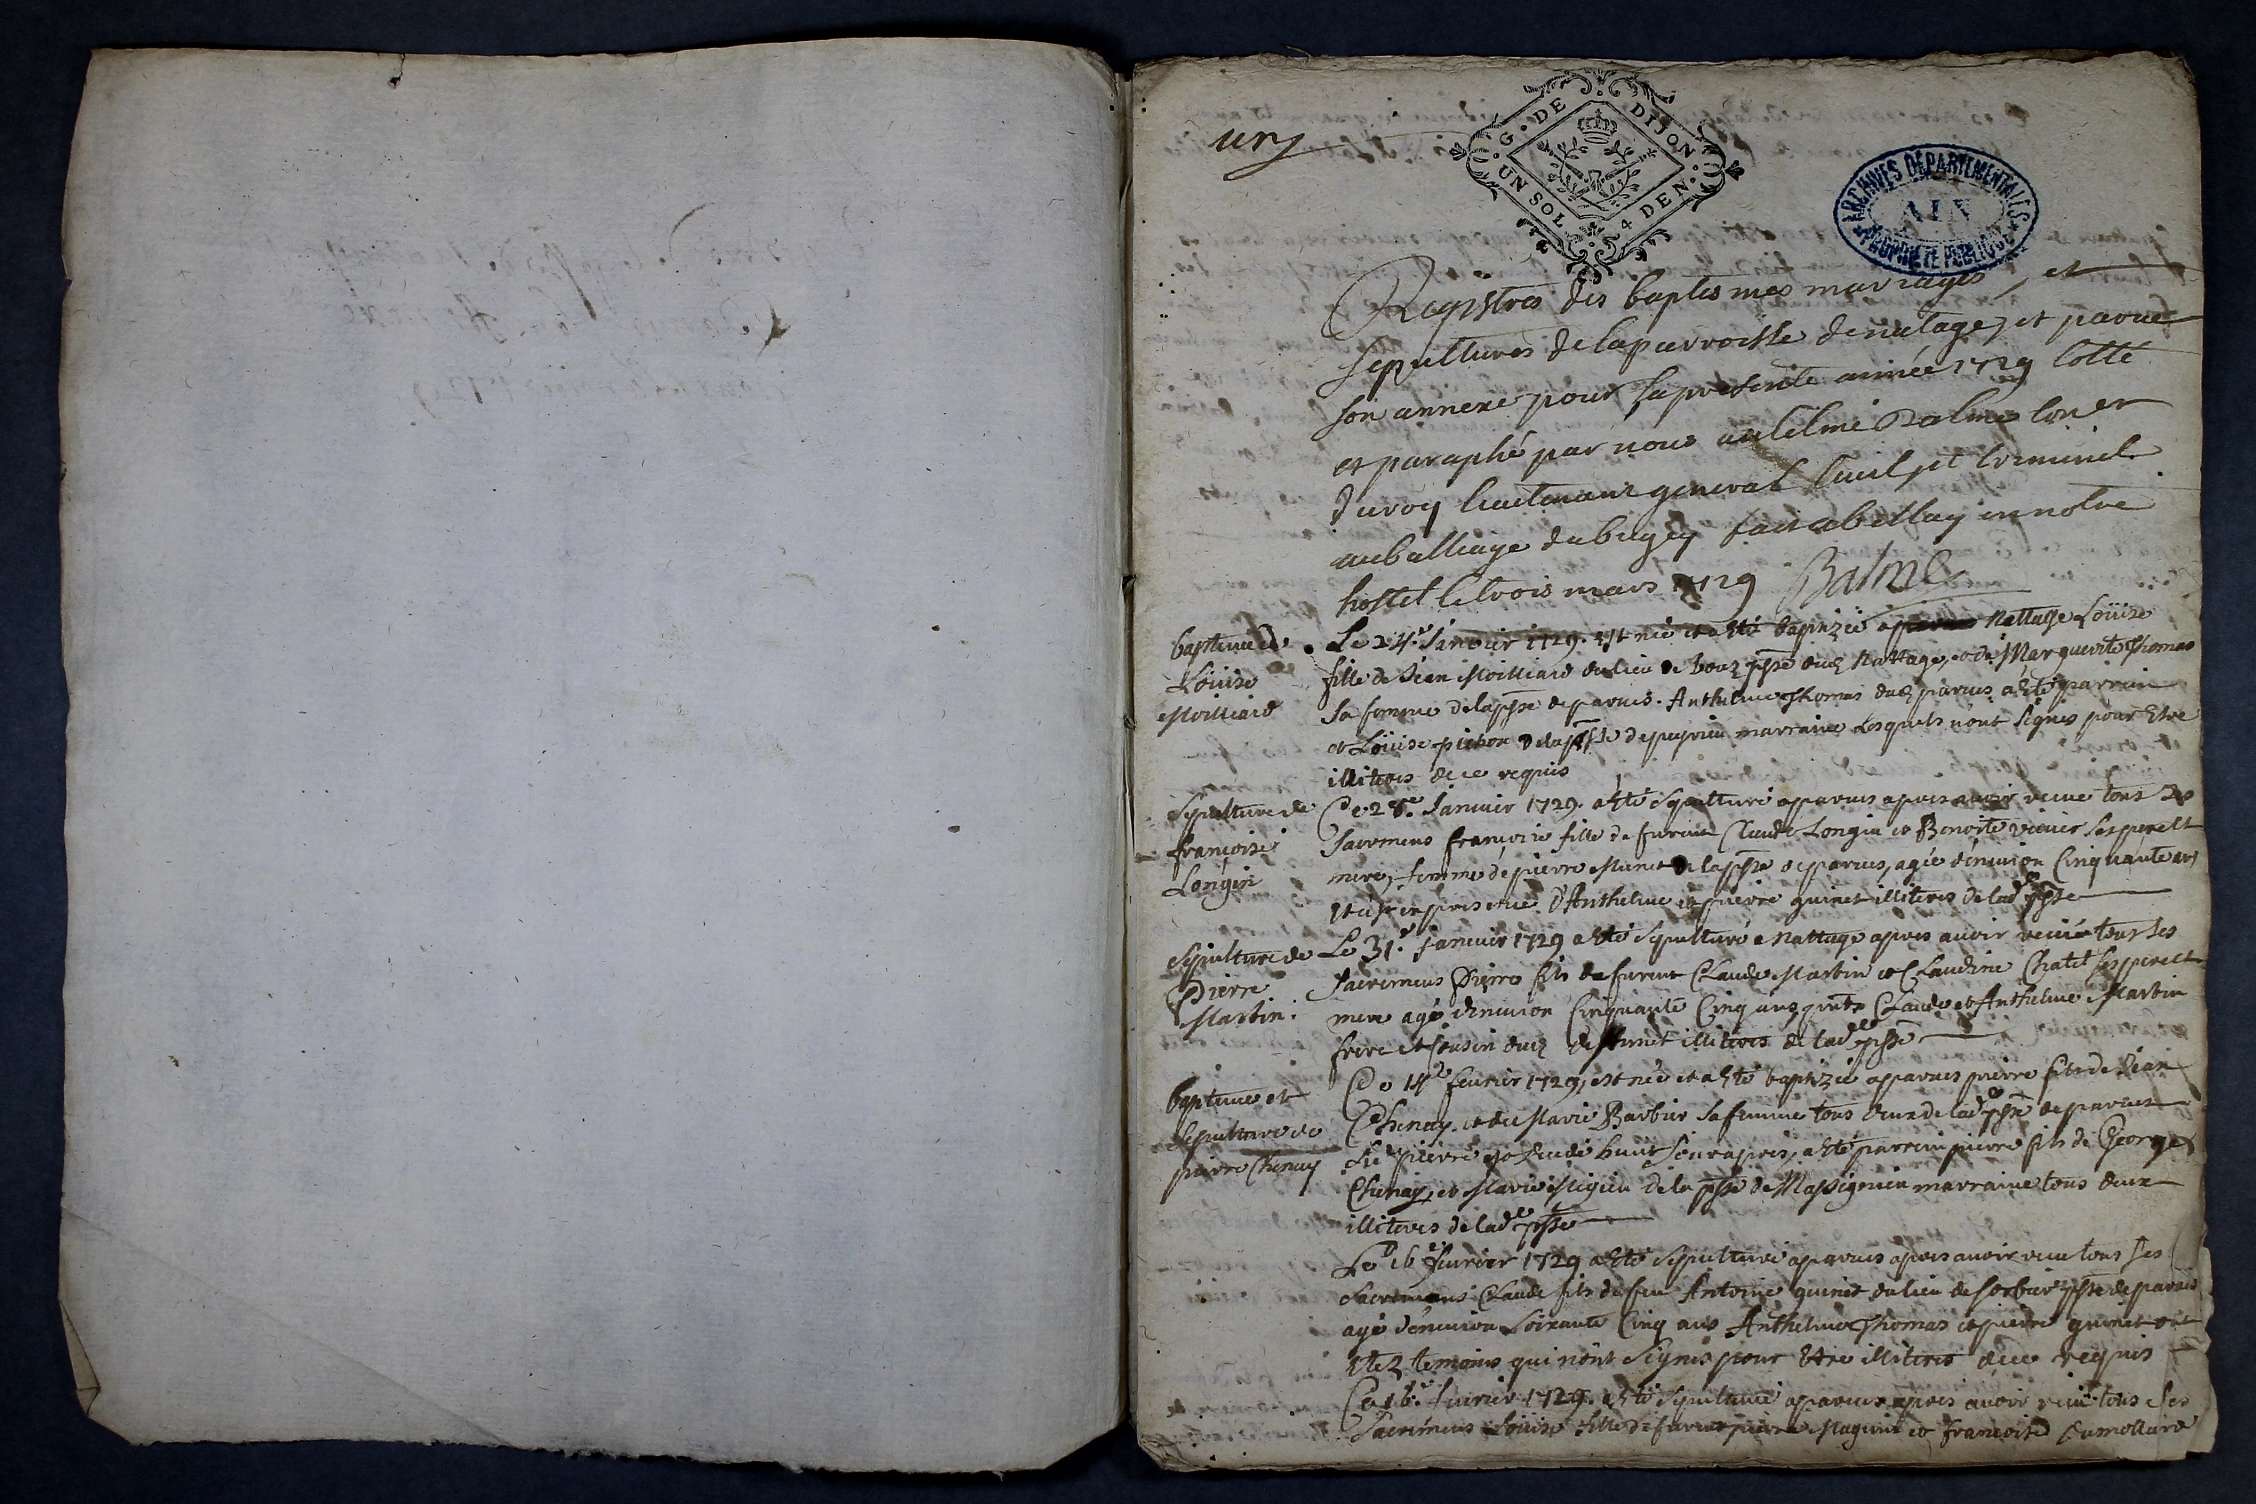 un
G. DE DIJON
UN SOL 4 DEN.
ARCHIVES DÉPARTEMENTALES
AIN
PROPRIÉTÉ PUBLIQUE
Registres des baptesmes mariages, et
sepultures de la parroisse de natage, et parve
son annexe pour la presente année 1729 Cotté
et paraphé par nous anthelme Balme Coner
du roy lieutenant general Civil, et Criminel
au balliage du bugey fait a bellay en notre
hostel le trois mars 1729 Balme
baptème de
Loüise
Moilliard
Le 24.e Janvier 1729. est née et a êté baptizée a Nattage Loüise
fille de Jean Moilliard du lieu de psse dud Nattage, et de Marguerite Thomas
sa femme de la psse de parves. Anthelme Thomas dud parves a êté parrain
et Loüise pichon de la psse de peyrieu marraine Lesquels n'ont signés pour être
illiteres de ce requis
Sepulture de
françoise
Longin
Ce 28.e Janvier 1729. a êté sepulturé a parves apres avoir receue tous les
Sacremens françoise fille de furent Claude Longin et Benoite vicier ses pere et
mere, femme de pierre Munet de la psse de parves, agée d'environ Cinquante ans
et ce en presence d'Anthelme et pierre guinet illiteres de lad.e psse
Sepulture de
Pierre
Martin.
Le 31.e Janvier 1729 a êté sepulturé a Nattage apres avoir receu tous les
Sacremens Pierre fils de furent Claude Martin et Claudine Chatel ses pere et
mere agé d'environ Cinquante Cinq ans presents Claude et Anthelme Martin
frere et Cousin dud deffunct illiteres de lad.e psse
baptème et
sepulture de
pierre Chenay
Ce 14.e fevrier 1729, est née et a êté baptizée a parves pierre fils de Jean
Chenay, et de Marie Barbier sa femme tous deux de lad.e psse de parves
Led pierre decedé huit jours apres, a êté parrain pierre fils de George
Chenay, et Marie Migieu de la psse de Massignieu marraine tous deux
illiteres de lad.e psse
Le 16.e fevrier 1729 a êté sepulturé a parves apres avoir receu tous les
Sacremens Claude fils de feu Antoine guinet du lieu de Sorbier psse de parves
agé d'environ Soixante Cinq ans Anthelme Thomas et pierre guinet ont
êtez temoins qui n'ont signés pour être illiteres de ce requis
Ce 16.e fevrier 1729. a êté sepulturée a parves apres avoir receu tous les
Sacremens Loüise fille de furent pierre Maginin et françoise Dumollard